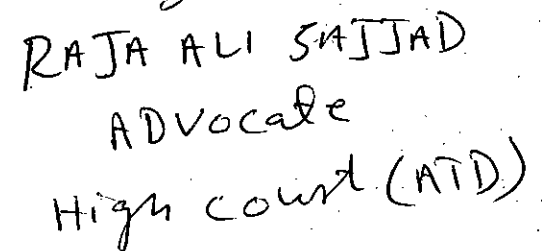 RAJA ALI SAJJAD
ADVocate
High court (ATD)